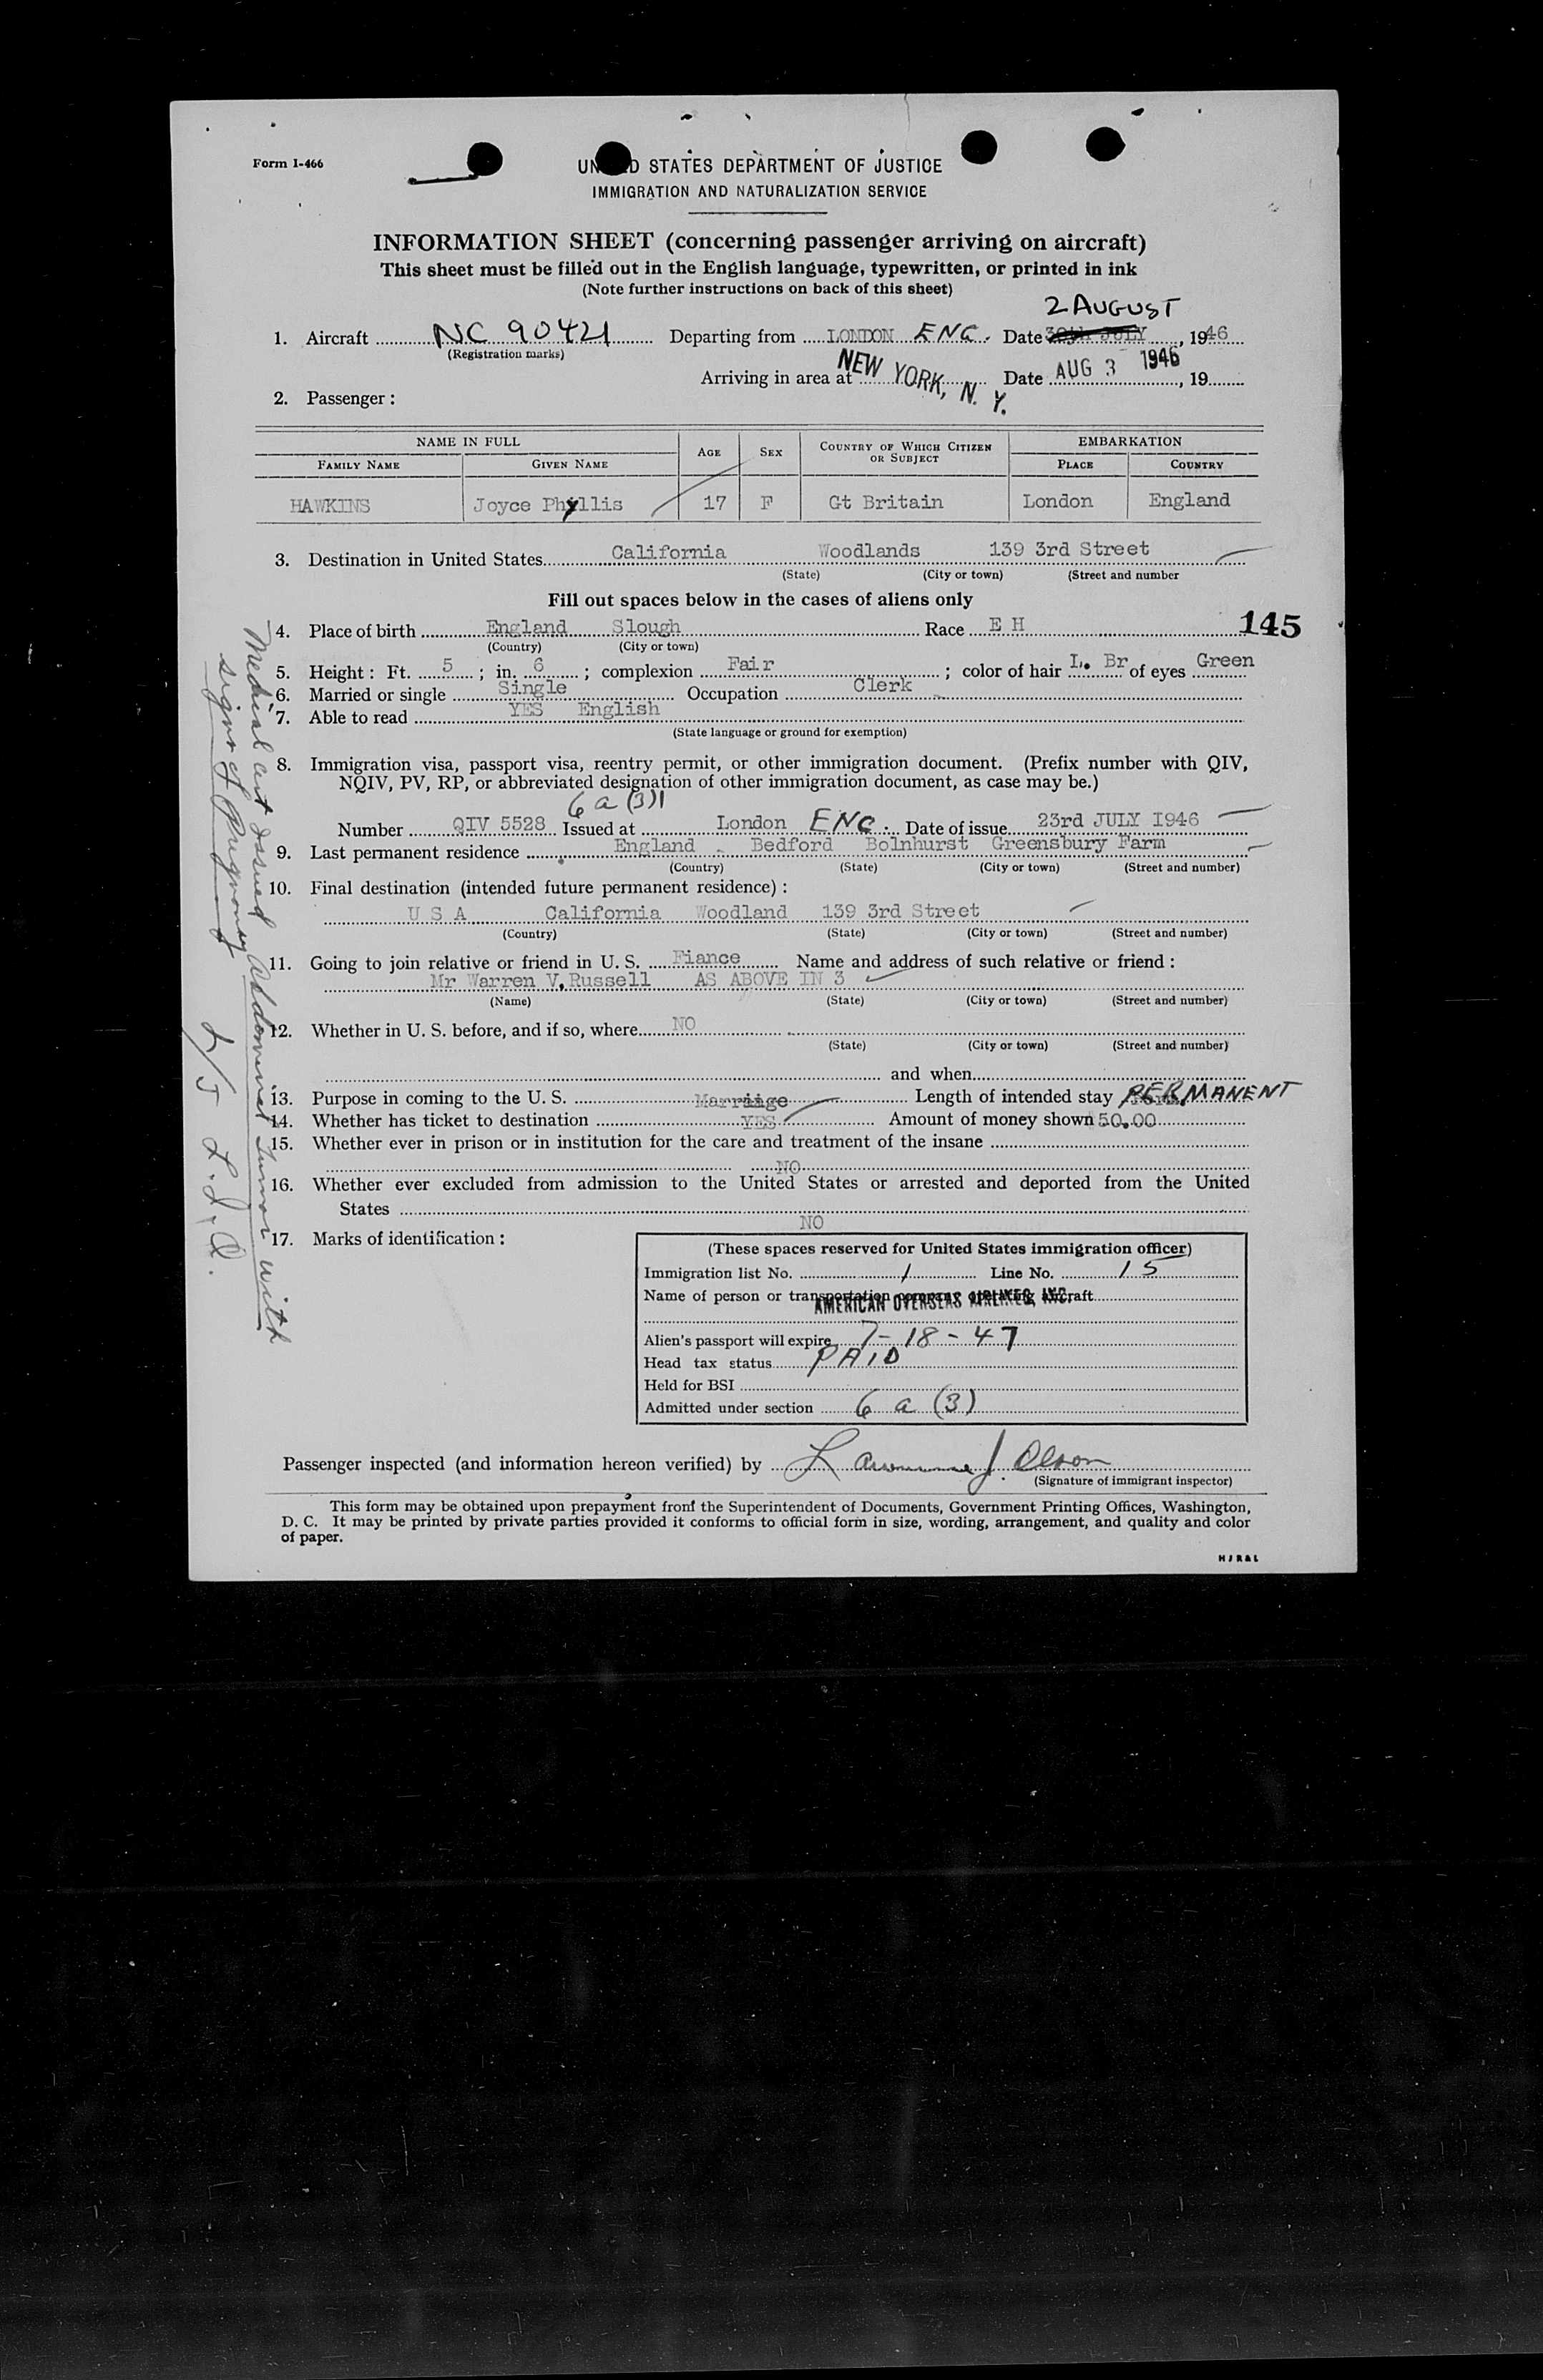 Form I-466
UN D STATES DEPARTMENT OF JUSTICE
IMMIGRATION AND NATURALIZATION SERVICE
INFORMATION SHEET (concerning passenger arriving on aircraft)
This sheet must be filled out in the English language, typewritten, or printed in ink
(Note further instructions on back of this sheet)
2 AUGUST
1. Aircraft NC 90421 Departing from LONDON ENG. Date 30th JULY, 1946
(Registration marks)
Arriving in area at NEW YORK, N. Y. Date AUG 3 1946, 19
2. Passenger :
NAME IN FULL AGE SEX COUNTRY OF WHICH CITIZEN OR SUBJECT EMBARKATION
FAMILY NAME GIVEN NAME PLACE COUNTRY
HAWKINS Joyce Phyllis 17 F Gt Britain London England
3. Destination in United States California Woodlands 139 3rd Street
(State) (City or town) (Street and number
Fill out spaces below in the cases of aliens only
4. Place of birth England Slough Race E H 145
(Country) (City or town)
5. Height : Ft. 5 ; in. 6 ; complexion Fair ; color of hair L. Br of eyes Green
6. Married or single Single Occupation Clerk
7. Able to read YES English
(State language or ground for exemption)
8. Immigration visa, passport visa, reentry permit, or other immigration document. (Prefix number with QIV,
NQIV, PV, RP, or abbreviated designation of other immigration document, as case may be.)
6 a (3)
Number QIV 5528 Issued at London ENG. Date of issue 23rd JULY 1946
9. Last permanent residence England Bedford Bolnhurst Greensbury Farm
(Country) (State) (City or town) (Street and number)
10. Final destination (intended future permanent residence) :
U S A California Woodland 139 3rd Street
(Country) (State) (City or town) (Street and number)
11. Going to join relative or friend in U. S. Fiance Name and address of such relative or friend :
Mr Warren V. Russell AS ABOVE IN 3
(Name) (State) (City or town) (Street and number)
12. Whether in U. S. before, and if so, where NO
(State) (City or town) (Street and number)
and when
13. Purpose in coming to the U. S. Marriage Length of intended stay PERMANENT
14. Whether has ticket to destination YES Amount of money shown 50.00
15. Whether ever in prison or in institution for the care and treatment of the insane
NO
16. Whether ever excluded from admission to the United States or arrested and deported from the United
States
NO
17. Marks of identification :
(These spaces reserved for United States immigration officer)
Immigration list No. 1 Line No. 15
Name of person or transportation company operating aircraft
AMERICAN OVERSEAS AIRLINES, INC.
Alien's passport will expire 7-18-47
Head tax status PAID
Held for BSI
Admitted under section 6 a (3)
Passenger inspected (and information hereon verified) by Lawrence J. Olson
(Signature of immigrant inspector)
This form may be obtained upon prepayment from the Superintendent of Documents, Government Printing Offices, Washington,
D. C. It may be printed by private parties provided it conforms to official form in size, wording, arrangement, and quality and color
of paper.
H J R & L
Medical cert issued Abdominal tumor with
signs of Pregnancy